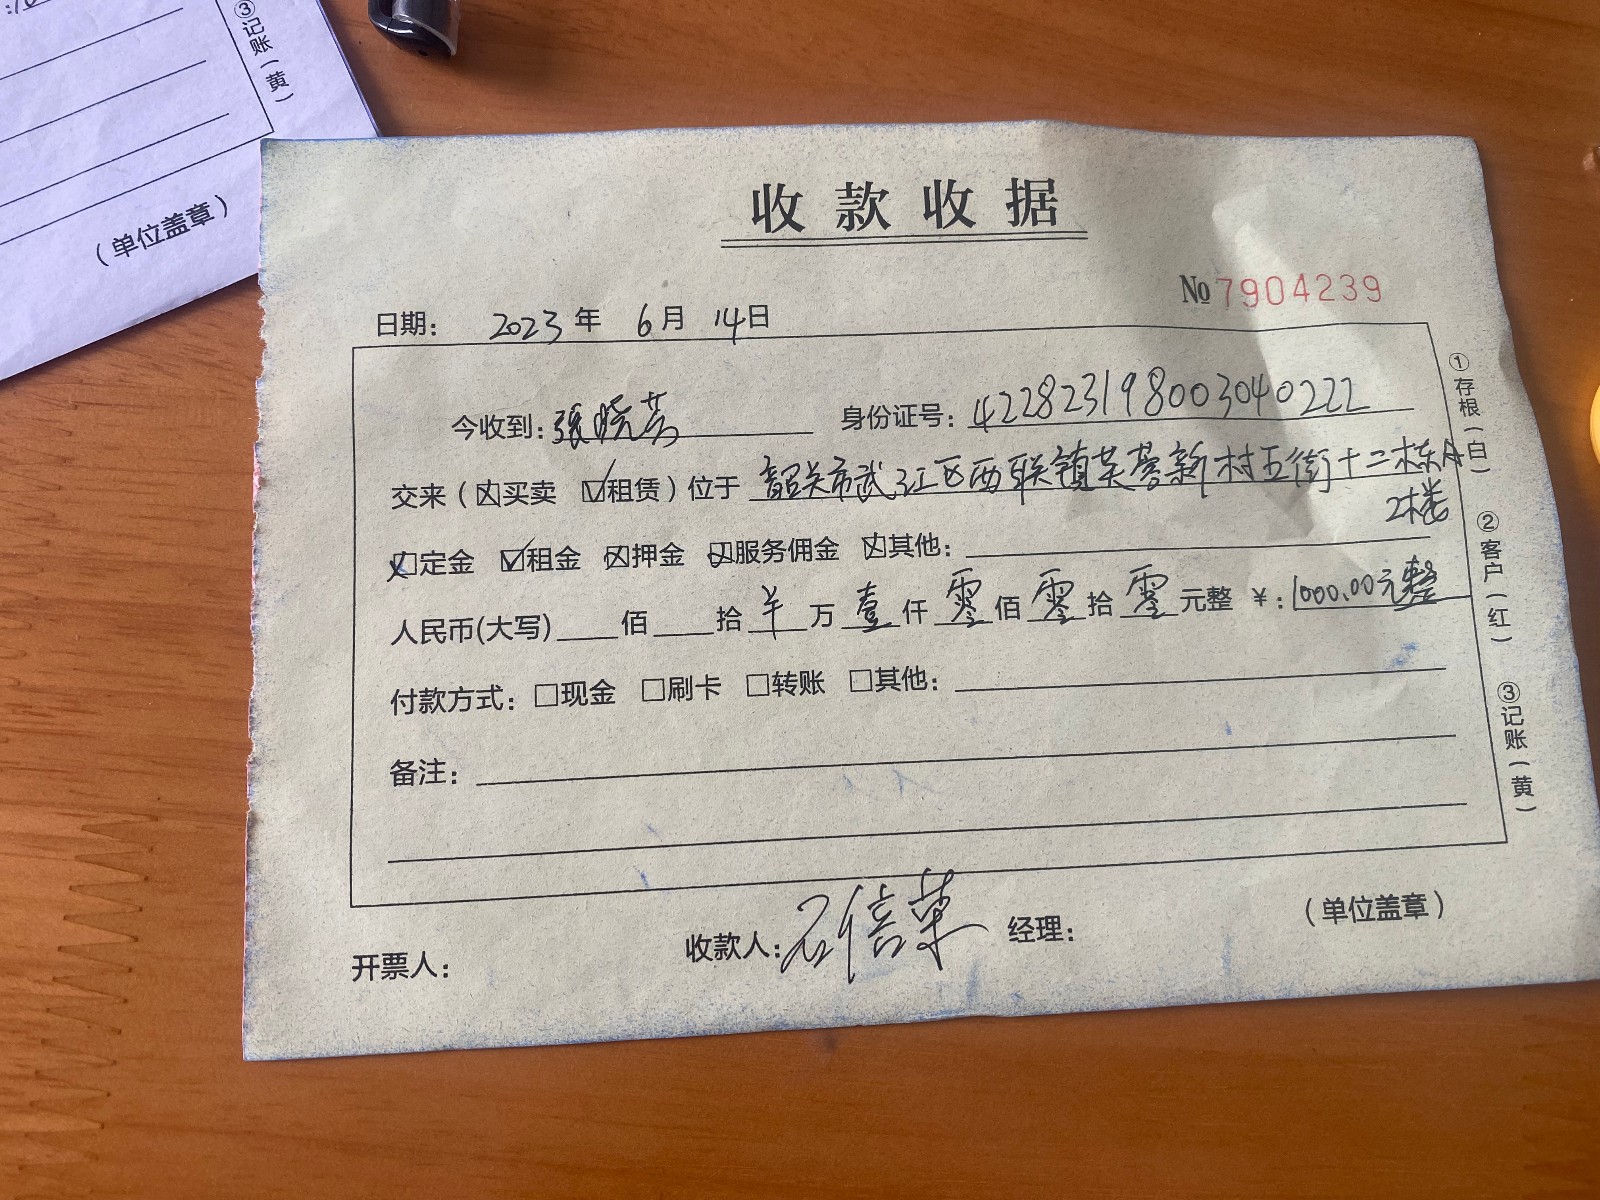 ③记账(黄)
(单位盖章)
收款收据
№7904239
日期: 2023年 6月 14日
今收到: 張晓芳 身份证号: 422823198003040222
交来(☒买卖 ☑租赁)位于 韶关市武江区西联镇芙蓉新村五街十二栋A
2楼
☒定金 ☑租金 ☒押金 ☒服务佣金 ☒其他:
人民币(大写)____佰____拾 羊 万 壹 仟 零 佰 零 拾 零 元整 ¥: 1000.00元整
付款方式: □现金 □刷卡 □转账 □其他:
备注:
开票人: 收款人: 石信荣 经理: (单位盖章)
①存根(白)
②客户(红)
③记账(黄)